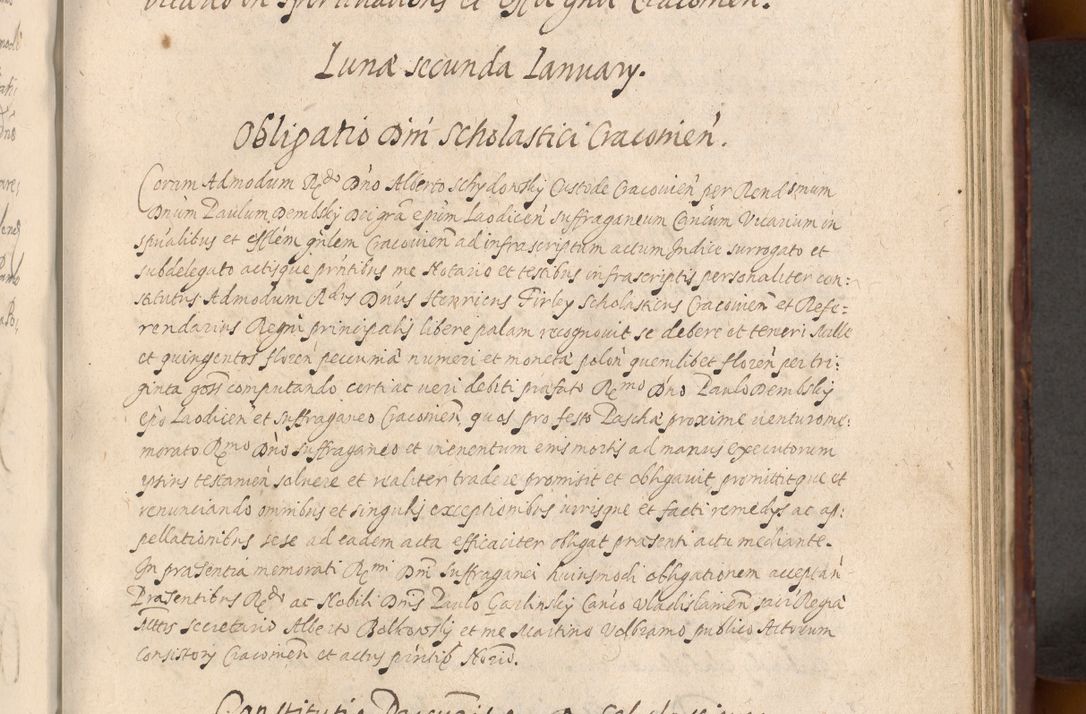 Lunæ secunda Ianuary.
Obligatio Dni Scholastici Cracovien.
Coram Admodum Rdo Dno Alberto Schydowsky Custode Cracovien per Rendsmum
Dnum Paulum Dembsky Dei gra epum Laodicen Suffraganeum Cancum Vicarium in
spualibus et efflem gnlem Cracovien ad infrascriptum actum Indice surrogato et
subdelegato actisque pntibus me Notario et testibus infrascriptis personaliter con:
stitutus Admodum Rdus Dnus Henricus Firley Scholasticus Cracovien et Refe:
rendarius Regni principalis libere palam recognovit se debere et teneri Mille
et quingentos floren pecuniæ numeri et moneta polon quemlibet floren per tri:
ginta goss computando certi ac veri debiti præfato Rmo Dno Paulo Dembsky
epo Laodicen et Suffraganeo Cracovien, quos pro festo Pascha proxime venturo me:
morato Rmo Dno Suffraganeo et in eventum eius mortis ad manus executorum
ipsius testamen solvere et realiter tradere promisit et obligavit promittitque et
renunciando omnibus et singulis exceptionibus iurisque et facti remedys ac ap:
pellationibus sese ad eadem acta efficaciter obligat præsenti actu mediante.
In præsentia memorati Rmi Dni Suffraganei huiusmodi obligationem acceptan
Præsentibus Rdo ac Nobili Dnis Paulo Garlinsky Canco Vladislavien sacræ Regiæ
Mttis Secretario Alberto Bolkowsky et me Martino Volbramo publico Actorum
Consistory Cracovien et actus pntis Norio.